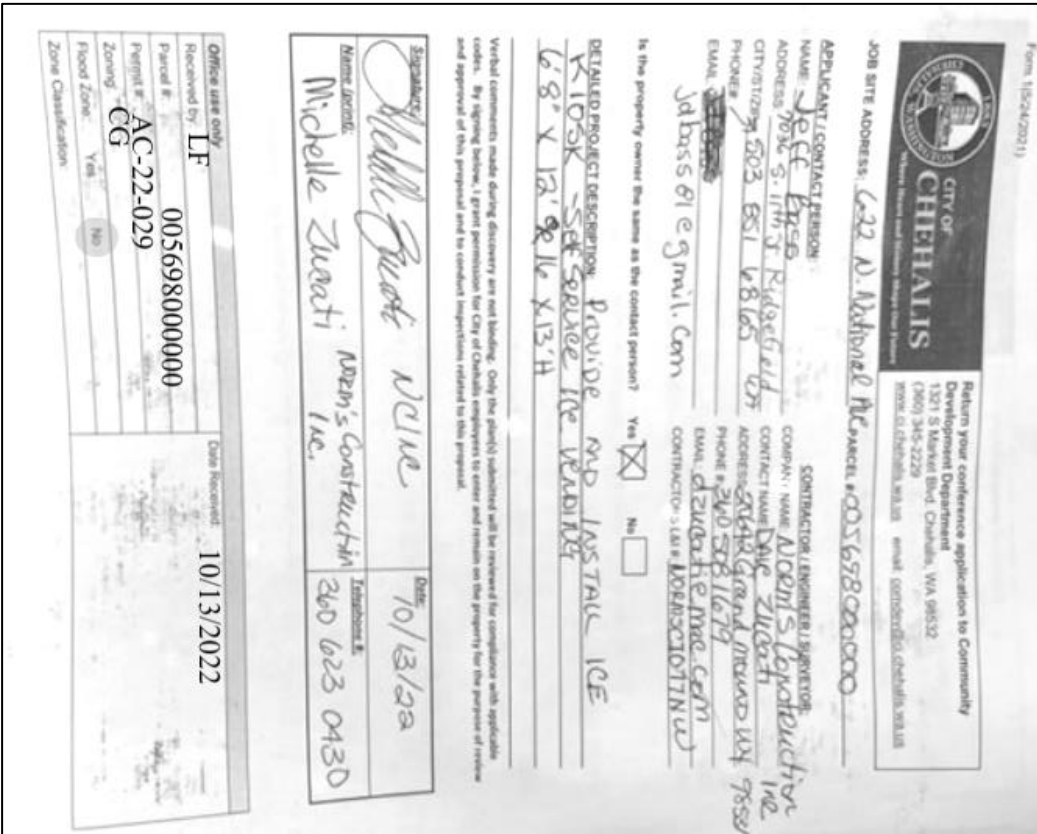 Form 1(5/24/2021)
CITY OF
CHEHALIS
Return your conference application to Community
Development Department
1321 S Market Blvd. Chehalis, WA 98532
(360) 345-2229
www.ci.chehalis.wa.us email comdev@ci.chehalis.wa.us
JOB SITE ADDRESS: 622 N. National Ave PARCEL # 005698000000
APPLICANT / CONTACT PERSON:
NAME: Jeff Bass
ADDRESS: S. Ridgefield WA
CITY/ST/Zip
PHONE#: 503 851 6865
EMAIL: jdbass01@gmail.com
CONTRACTOR / ENGINEER / SURVEYOR:
COMPANY NAME: NORM'S Construction Inc
CONTACT NAME: Dave Zucati
ADDRESS: Grand mound WY
PHONE #: 360 508 1679
EMAIL: dzucati@mac.com
CONTRACTOR'S L&I #:
Is the property owner the same as the contact person? Yes X No
DETAILED PROJECT DESCRIPTION: Provide AND INSTALL ICE
KIOSK - Self Service Ice vending
6'8" X 12' X 13'H
Verbal comments made during discovery are not binding. Only the plan(s) submitted will be reviewed for compliance with applicable
codes. By signing below, I grant permission for City of Chehalis employees to enter and remain on the property for the purpose of review
and approval of this proposal and to conduct inspections related to this proposal.
Signature: NCINC
Date: 10/13/22
Name (print): Michelle Zucati Norm's Construction Inc.
Telephone #: 360 623 0430
Office use only
Received by: LF
Date Received: 10/13/2022
Parcel #: 005698000000
Permit #: AC-22-029
Zoning: CG
Flood Zone: Yes No
Zone Classification: